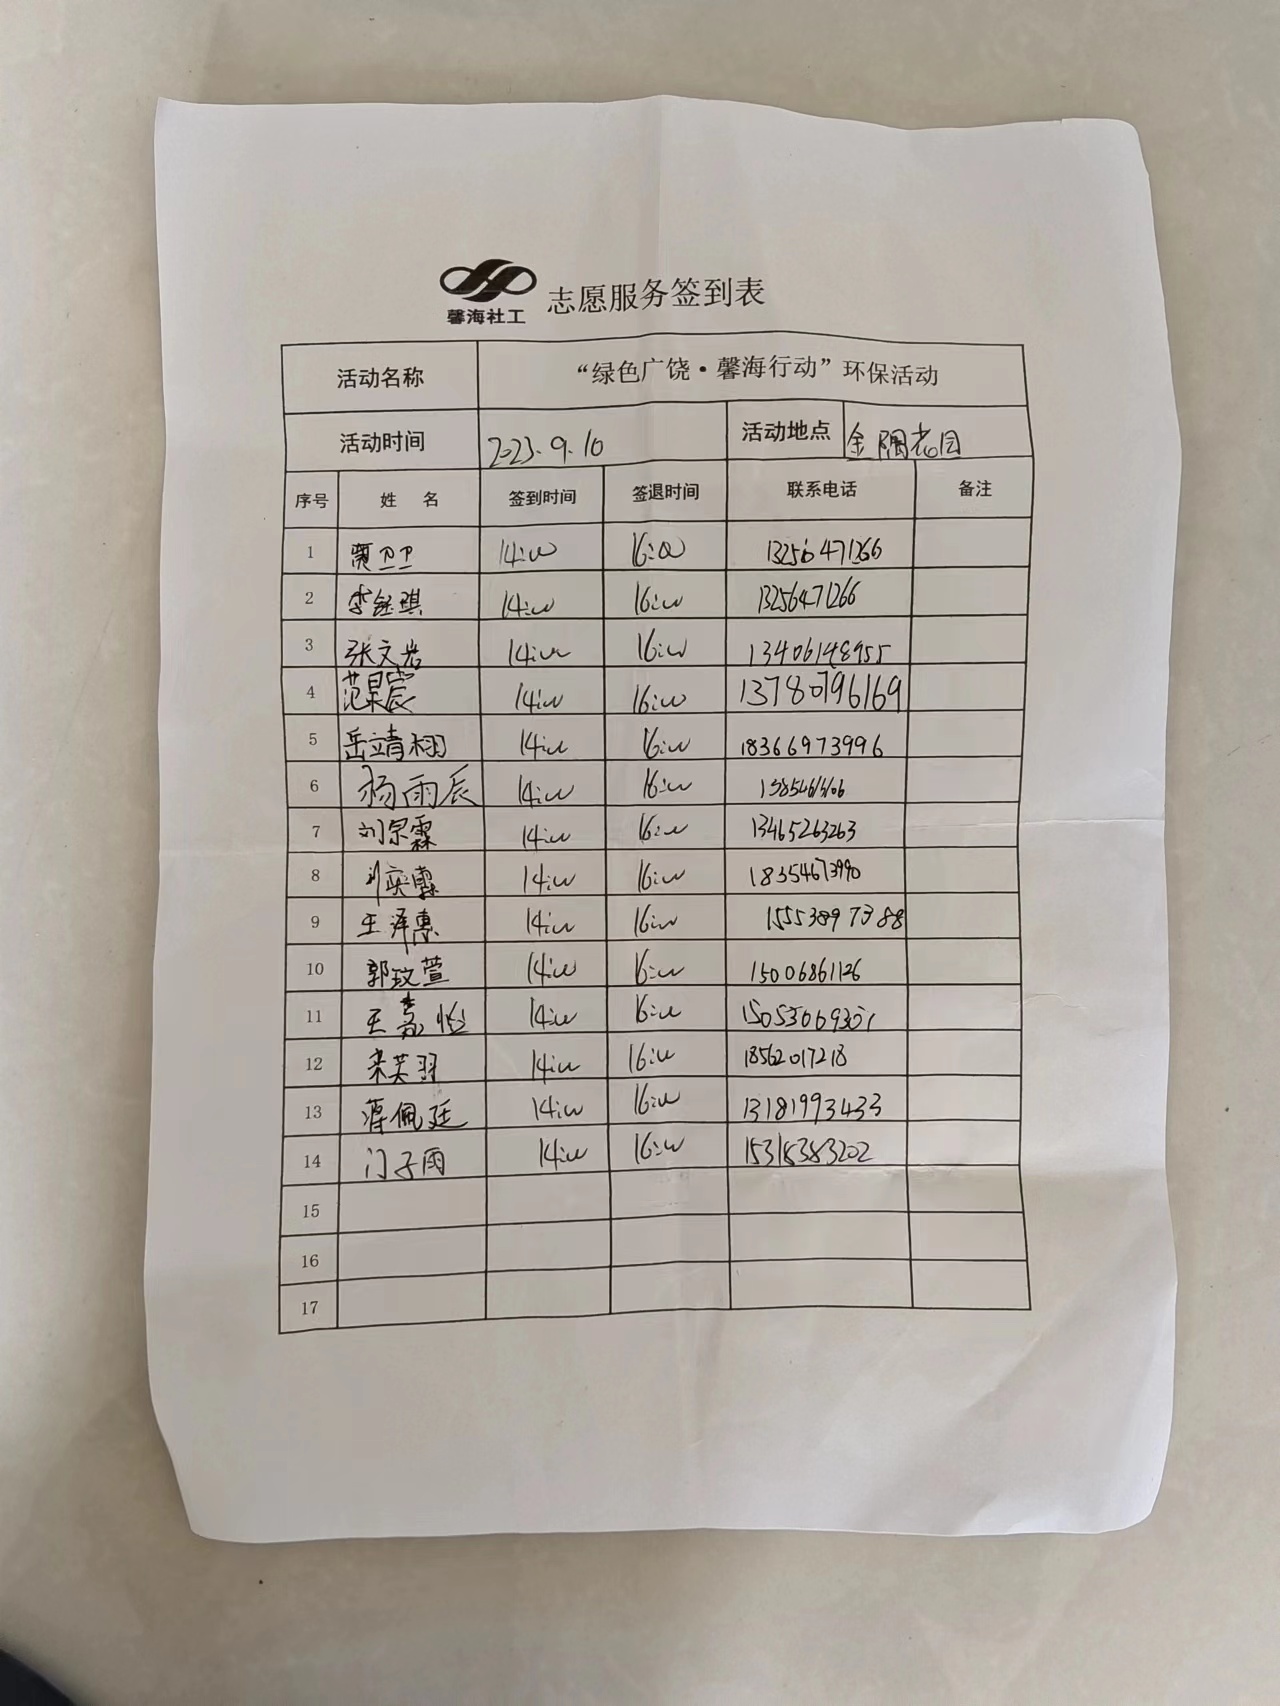 馨海社工
志愿服务签到表
活动名称 “绿色广饶·馨海行动”环保活动
活动时间 2023.9.10 活动地点 金隅花园
序号 姓 名 签到时间 签退时间 联系电话 备注
1 贾卫卫 14:00 16:00 13256471266
2 李钰琪 14:00 16:00 13256471266
3 张文岩 14:00 16:00 13406148955
4 范昊宸 14:00 16:00 13780796169
5 岳靖栩 14:00 16:00 18366973996
6 杨雨辰 14:00 16:00
7 刘宗霖 14:00 16:00 13465263263
8 刘奕霖 14:00 16:00 18354673990
9 王泽惠 14:00 16:00 15553897388
10 郭玟萱 14:00 16:00 15006861126
11 王嘉怡 14:00 16:00 15053069301
12 宋芙羽 14:00 16:00 18562017218
13 蒋佩廷 14:00 16:00 13181993433
14 门子雨 14:00 16:00 15318383202
15
16
17